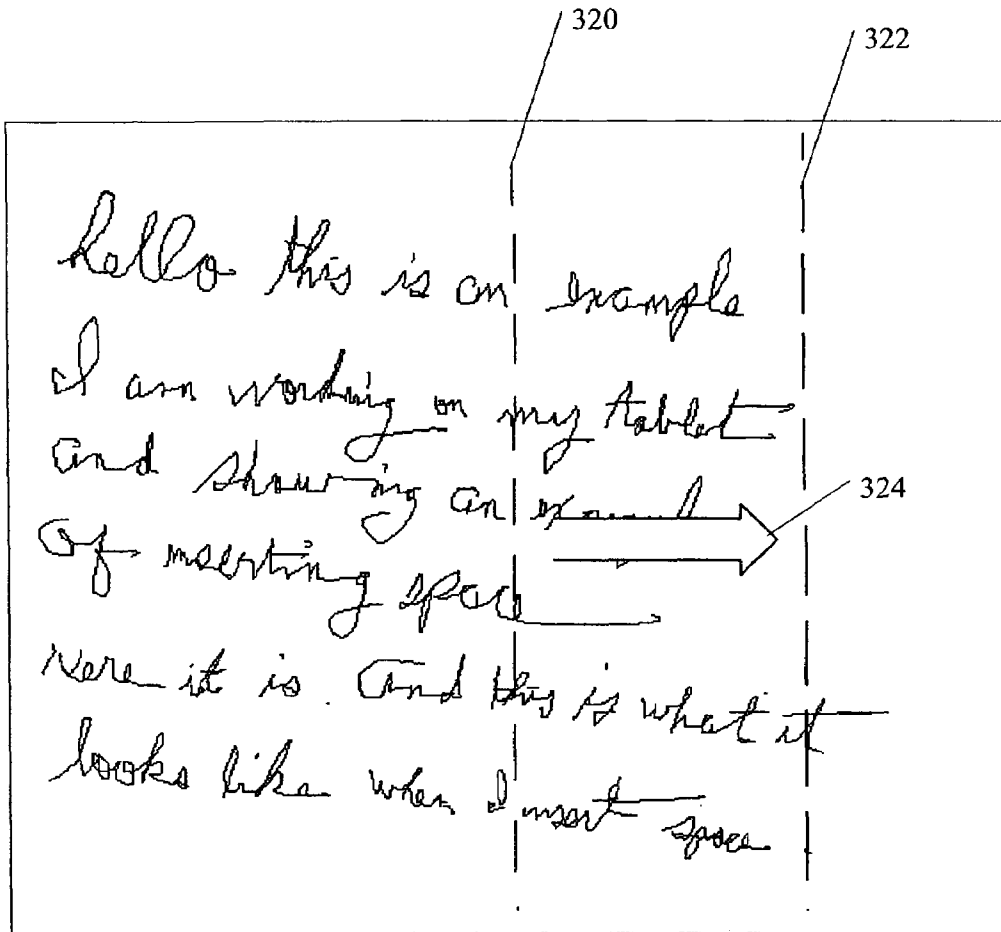 320
322
hello this is an example
I am working on my tablet
and showing an
324
of inserting space
here it is. And this is what it
looks like when I insert space